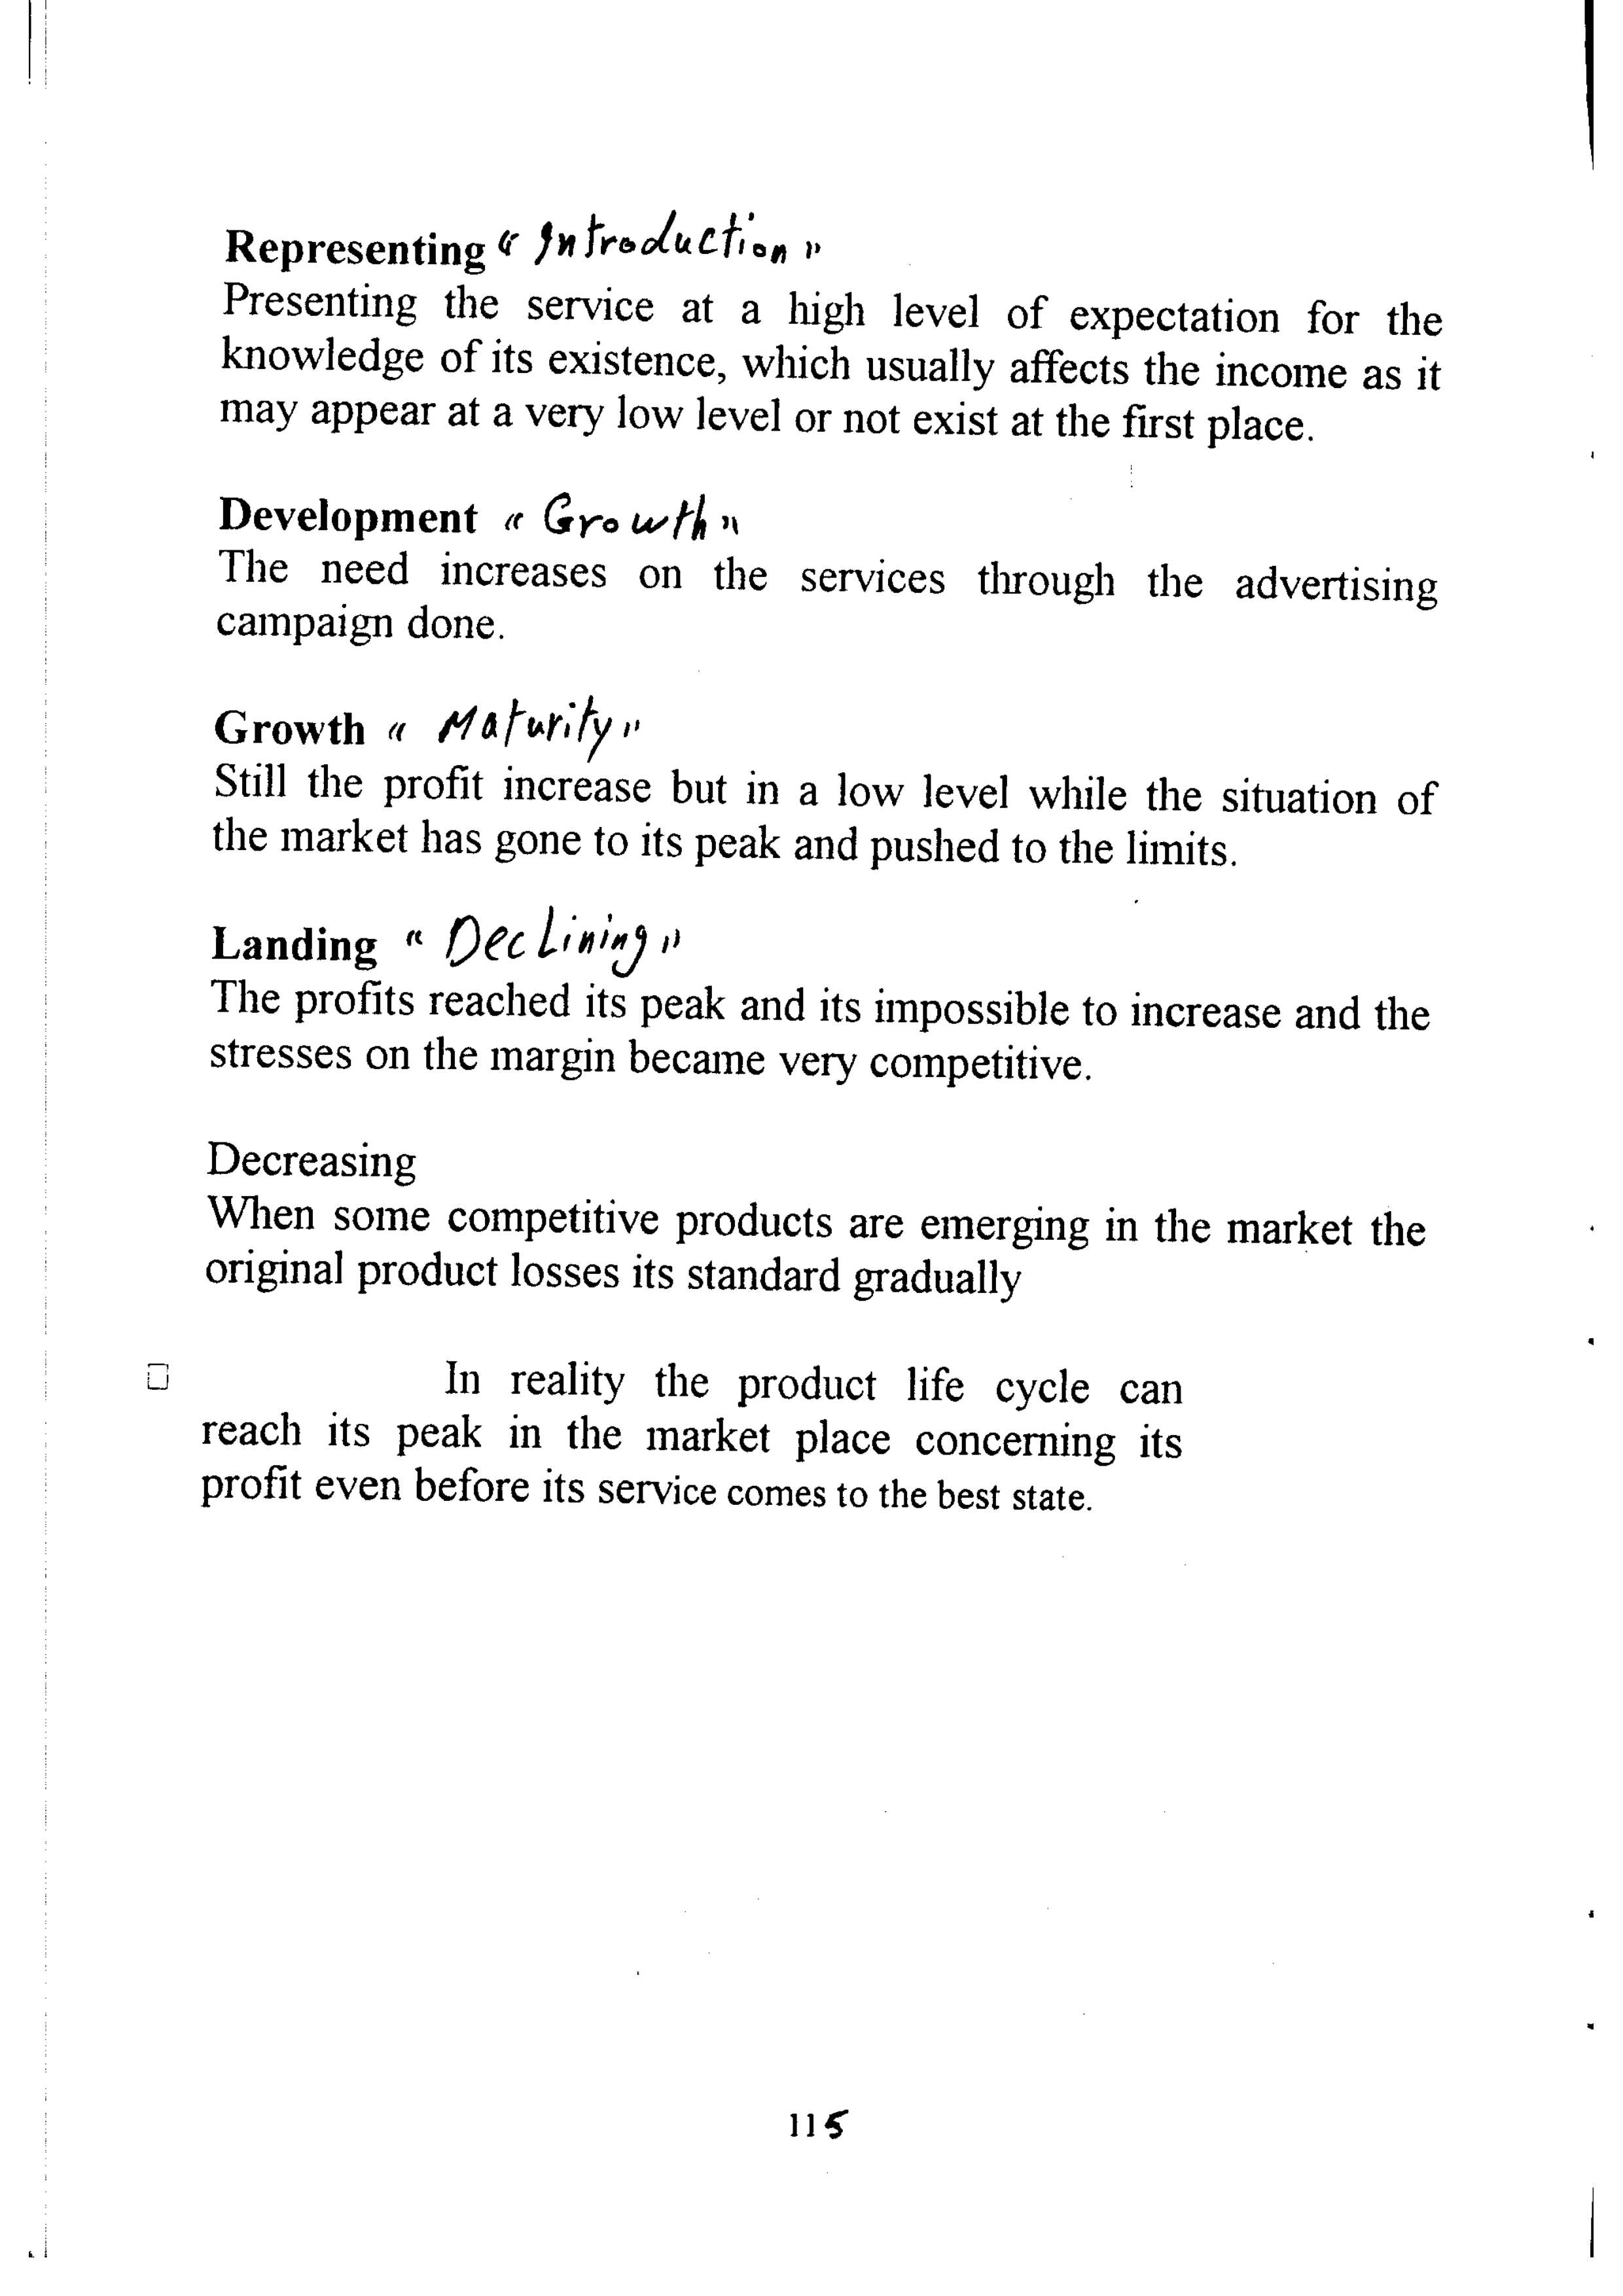 Representing “Introduction”
Presenting the service at a high level of expectation for the
knowledge of its existence, which usually affects the income as it
may appear at a very low level or not exist at the first place.
Development “Growth”
The need increases on the services through the advertising
campaign done.
Growth “Maturity”
Still the profit increase but in a low level while the situation of
the market has gone to its peak and pushed to the limits.
Landing “Declining”
The profits reached its peak and its impossible to increase and the
stresses on the margin became very competitive.
Decreasing
When some competitive products are emerging in the market the
original product losses its standard gradually
In reality the product life cycle can
reach its peak in the market place concerning its
profit even before its service comes to the best state.
115